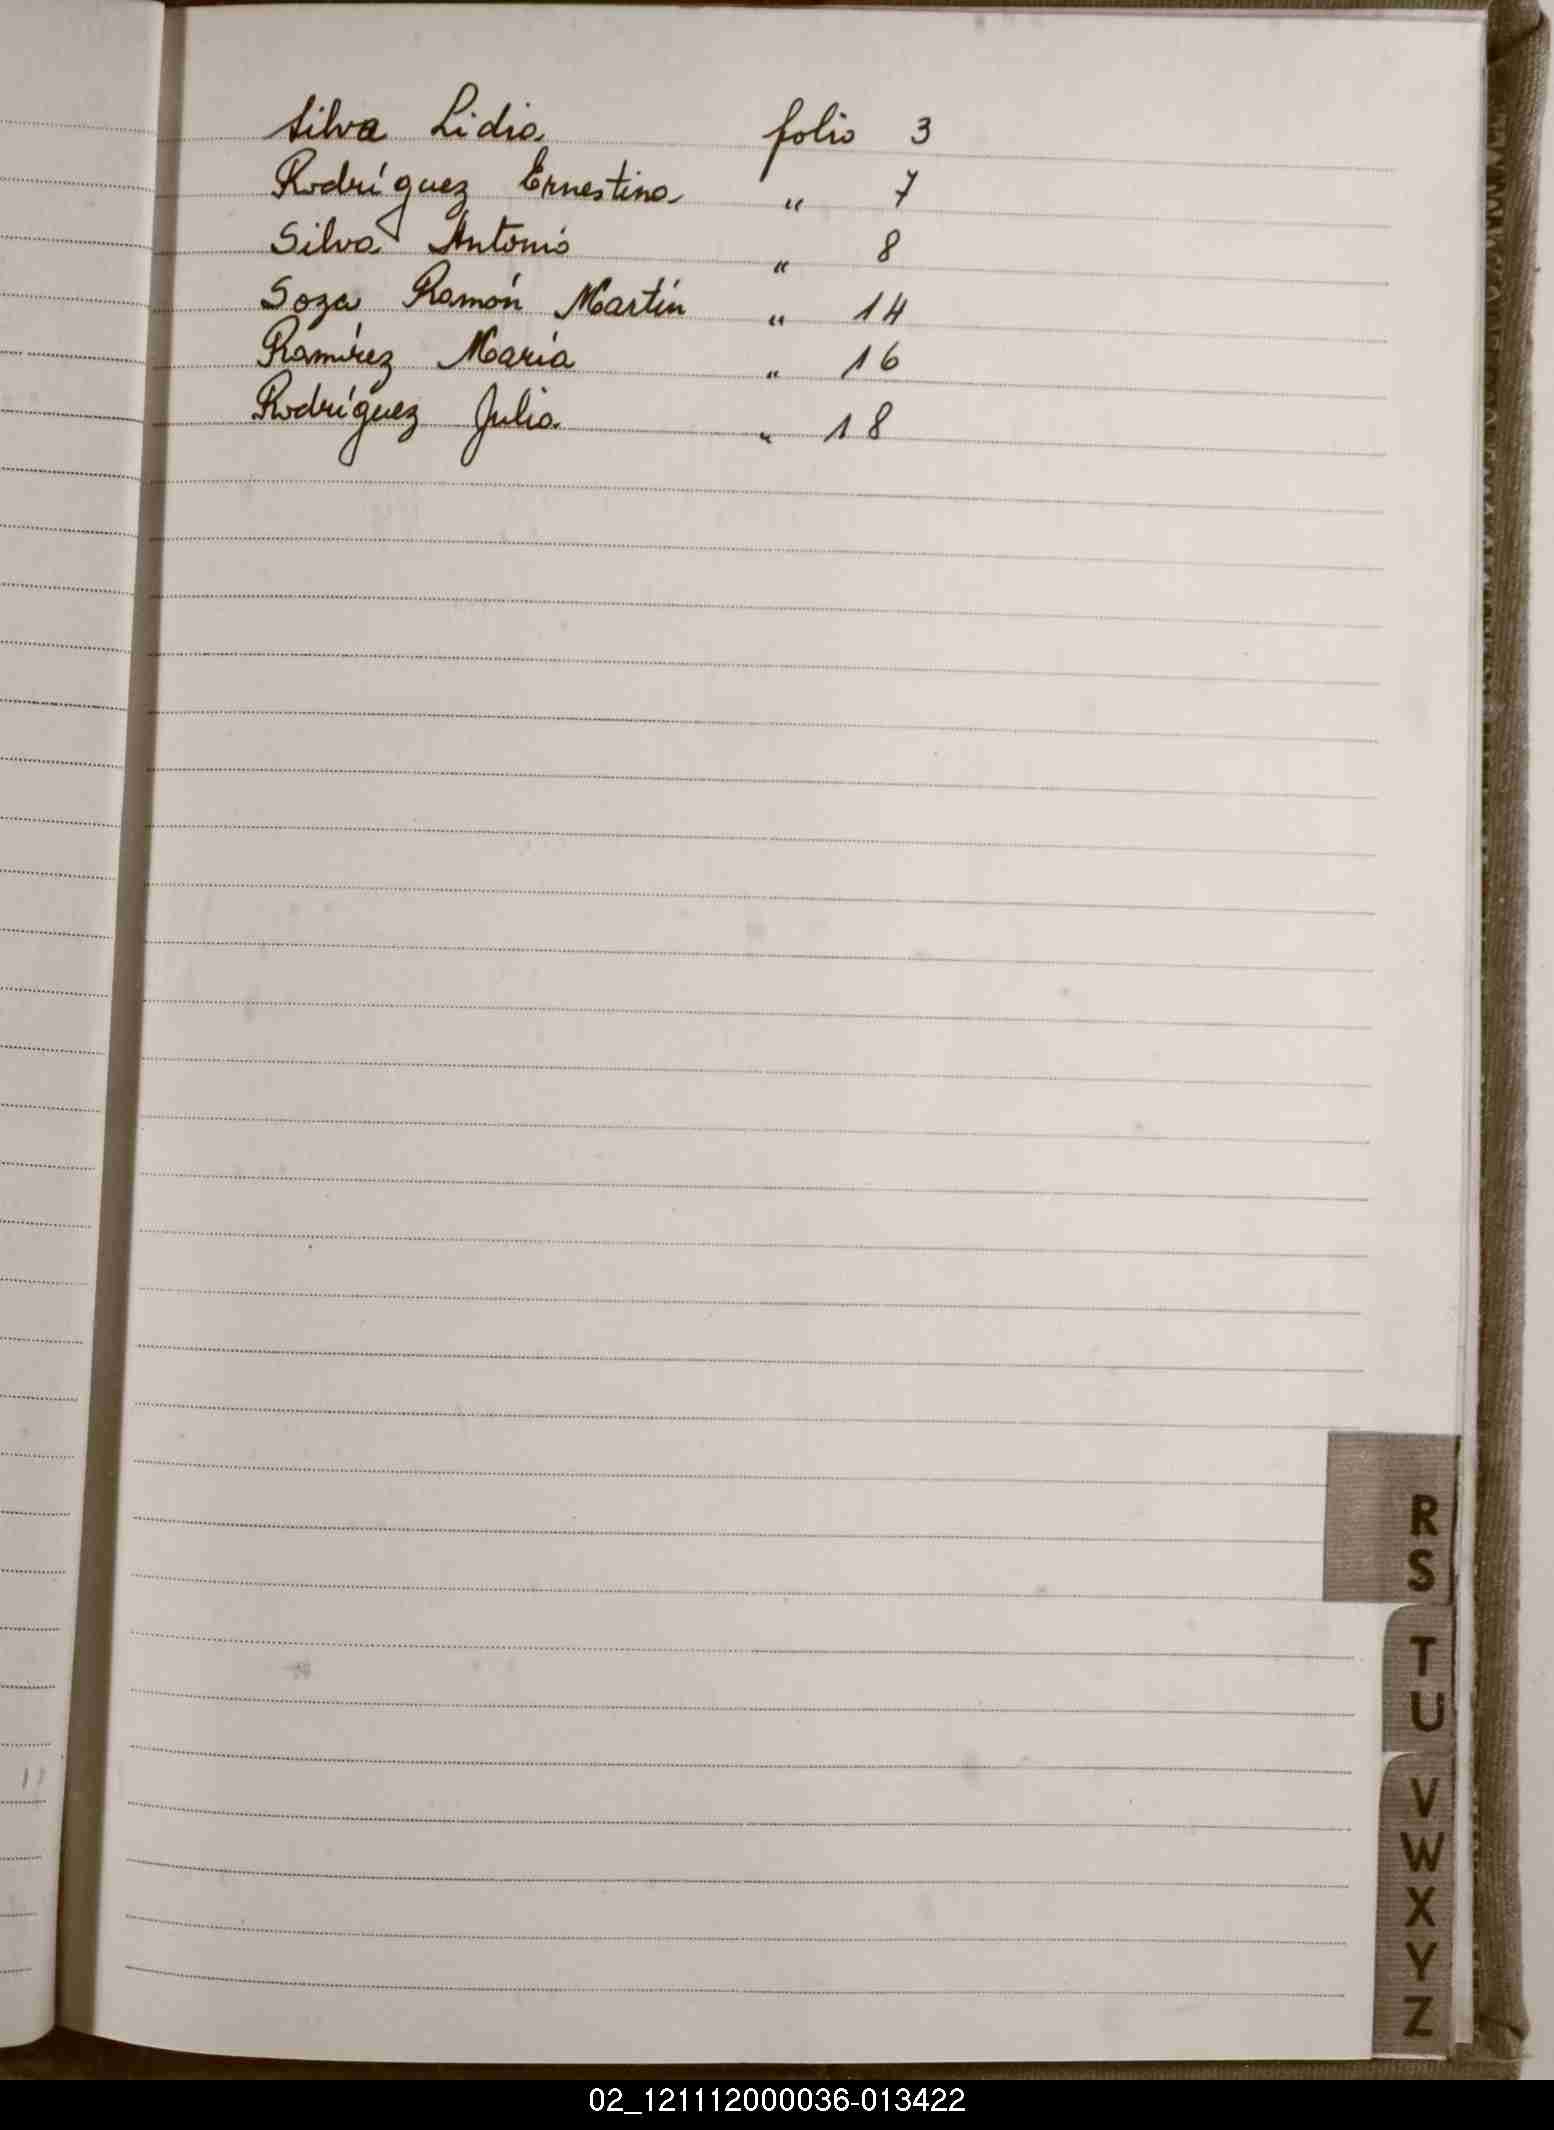 Silva Lidia folio 3
Rodríguez Ernestina " 7
Silva Antonio " 8
Soza Ramón Martín " 14
Ramírez María " 16
Rodríguez Julia " 18
R
S
T
U
V
W
X
Y
Z
02_121112000036-013422